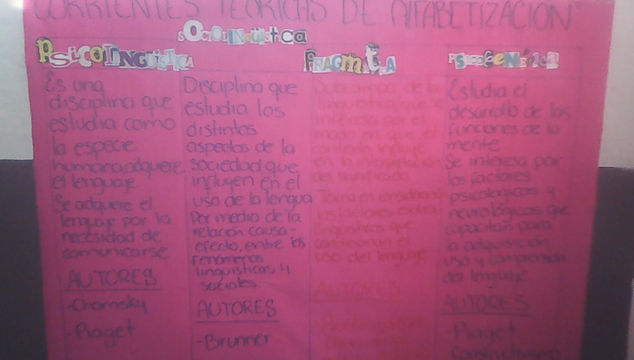 CORRIENTES TEÓRICAS DE ALFABETIZACIÓN"
PSICOLINGUÍSTICA
Es una
disciplina que
estudia como
la especie
humana adquiere
el lenguaje
Se adquiere el
lenguaje por la
necesidad de
comunicarse
AUTORES
-Chomsky
-Piaget
SOCIOLINGUISTICA
Disciplina que
estudia los
distintos
aspectos de la
sociedad que
influyen en el
uso de la lengua
Por medio de la
relación causa-
efecto, entre los
fenómenos
linguisticos y
sociales.
AUTORES
-Brunner
PRAGMATICA
Subcampo de la
linguistica que se
interesa por el
modo en que el
contexto influye
en la interpretación
del significado
Toma en consideración
los factores extra-
linguisticos que
condicionan el
uso del lenguaje
AUTORES
PSICOGENETICA
Estudia el
desarrollo de las
funciones de la
mente
Se interesa por
los factores
psicologicos y
neurológicos que
capacitan para
la adquisición,
uso y comprensión
del lenguaje
AUTORES
-Piaget